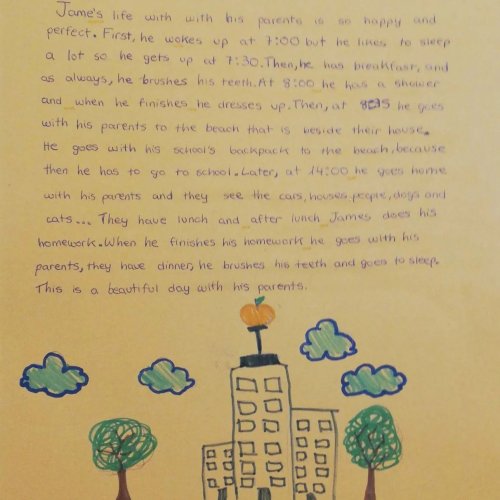 Jame's life with with his parents is so happy and
perfect. First, he wokes up at 7:00 but he likes to sleep
a lot so he gets up at 7:30. Then, he has breakfast, and
as always, he brushes his teeth. At 8:00 he has a shower
and when he finishes he dresses up. Then, at 8:15 he goes
with his parents to the beach that is beside their house.
He goes with his school's backpack to the beach, because
then he has to go to school. Later, at 14:00 he goes home
with his parents and they see the cars, houses, people, dogs and
cats... They have lunch and after lunch James does his
homework. When he finishes his homework he goes with his
parents, they have dinner, he brushes his teeth and goes to sleep.
This is a beautiful day with his parents.